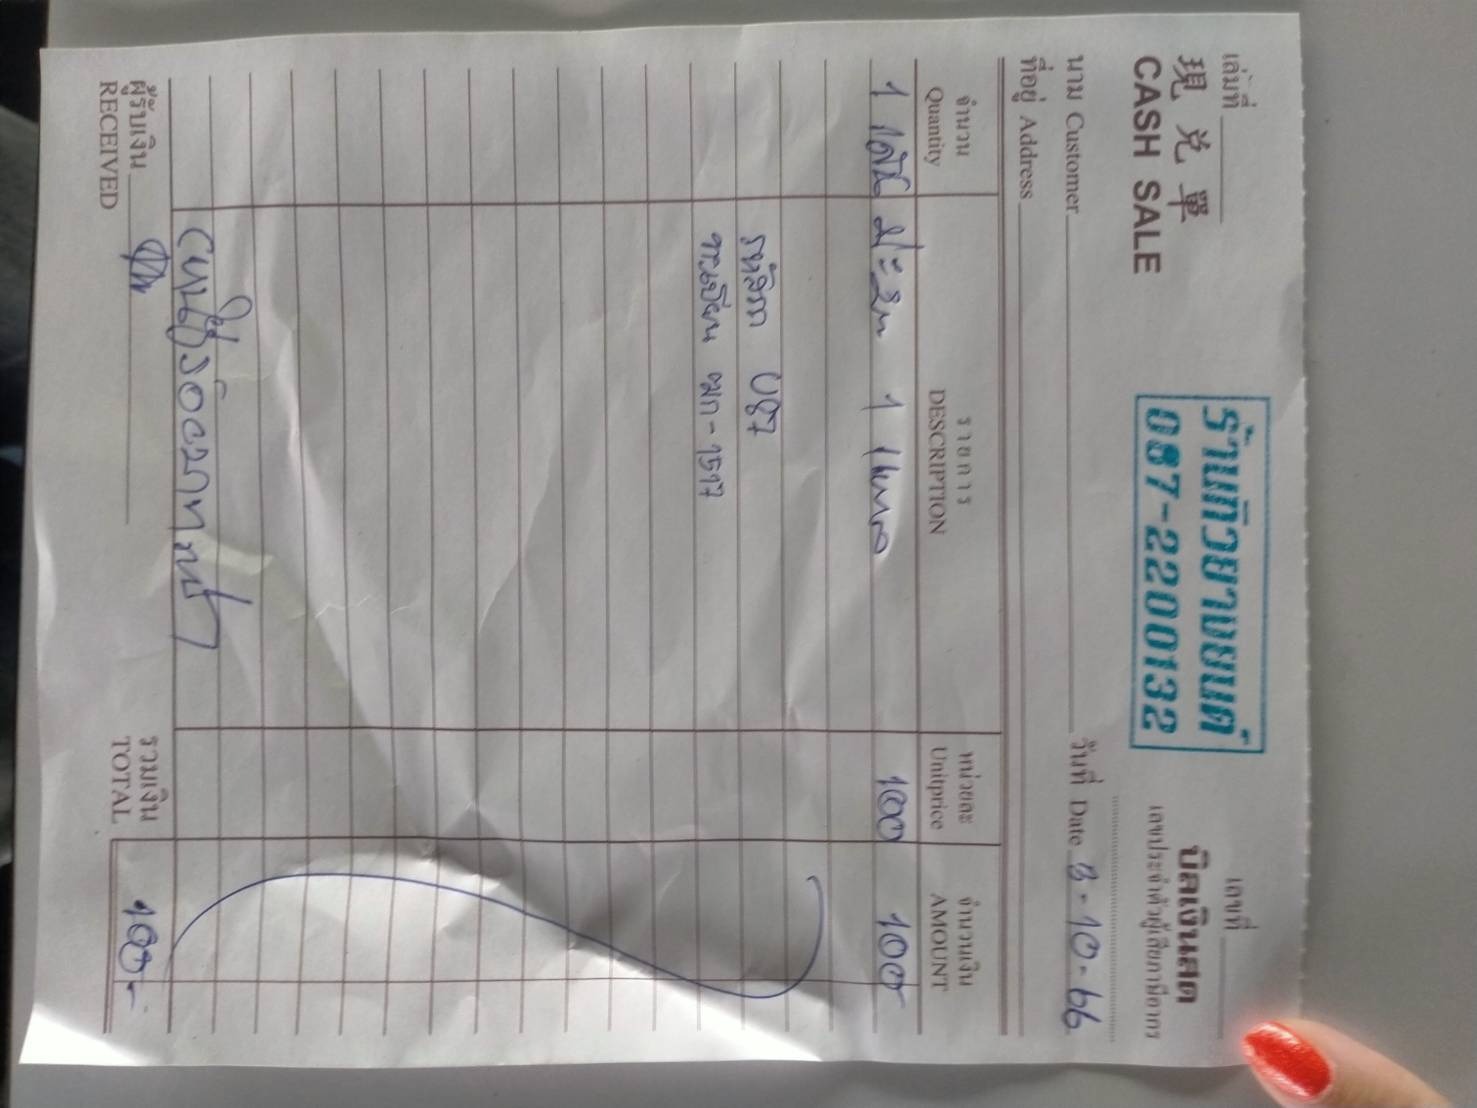 เล่มที่
เลขที่
現兌單
CASH SALE
ร้านทิวยางยนต์
087-2200132
บิลเงินสด
เลขประจำตัวผู้เสียภาษีอากร
นาม Customer
วันที่ Date 3-10-66
ที่อยู่ Address
จำนวน Quantity
รายการ DESCRIPTION
หน่วยละ Unitprice
จำนวนเงิน AMOUNT
1 เส้น ปะยาง 1 100 100
รหัสรถ U87
ทะเบียน ฒก-1517
รวมเงิน TOTAL 100-
ผู้รับเงิน RECEIVED